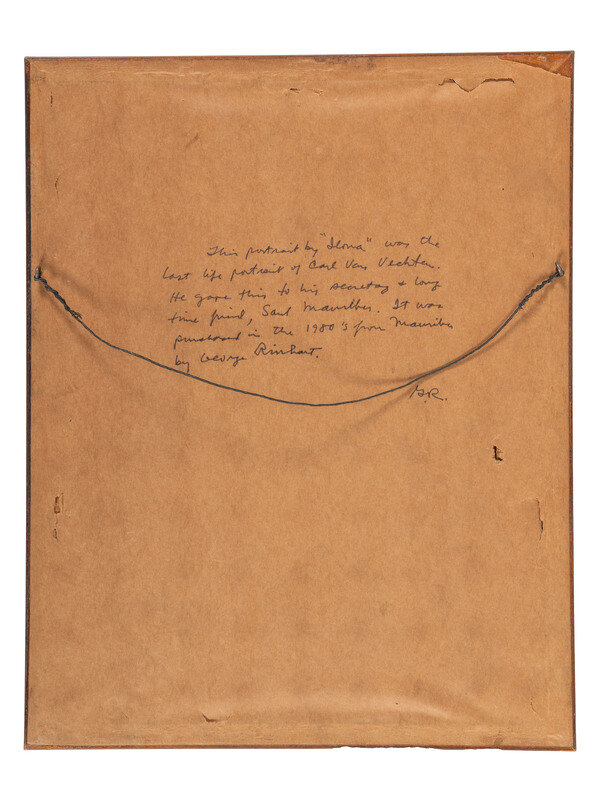 This portrait by "Ilona" was the
last life portrait of Carl Van Vechten.
He gave this to his secretary & long
time friend, Saul Mauriber. It was
purchased in the 1980's from Mauriber
by George Rinhart.
G.R.